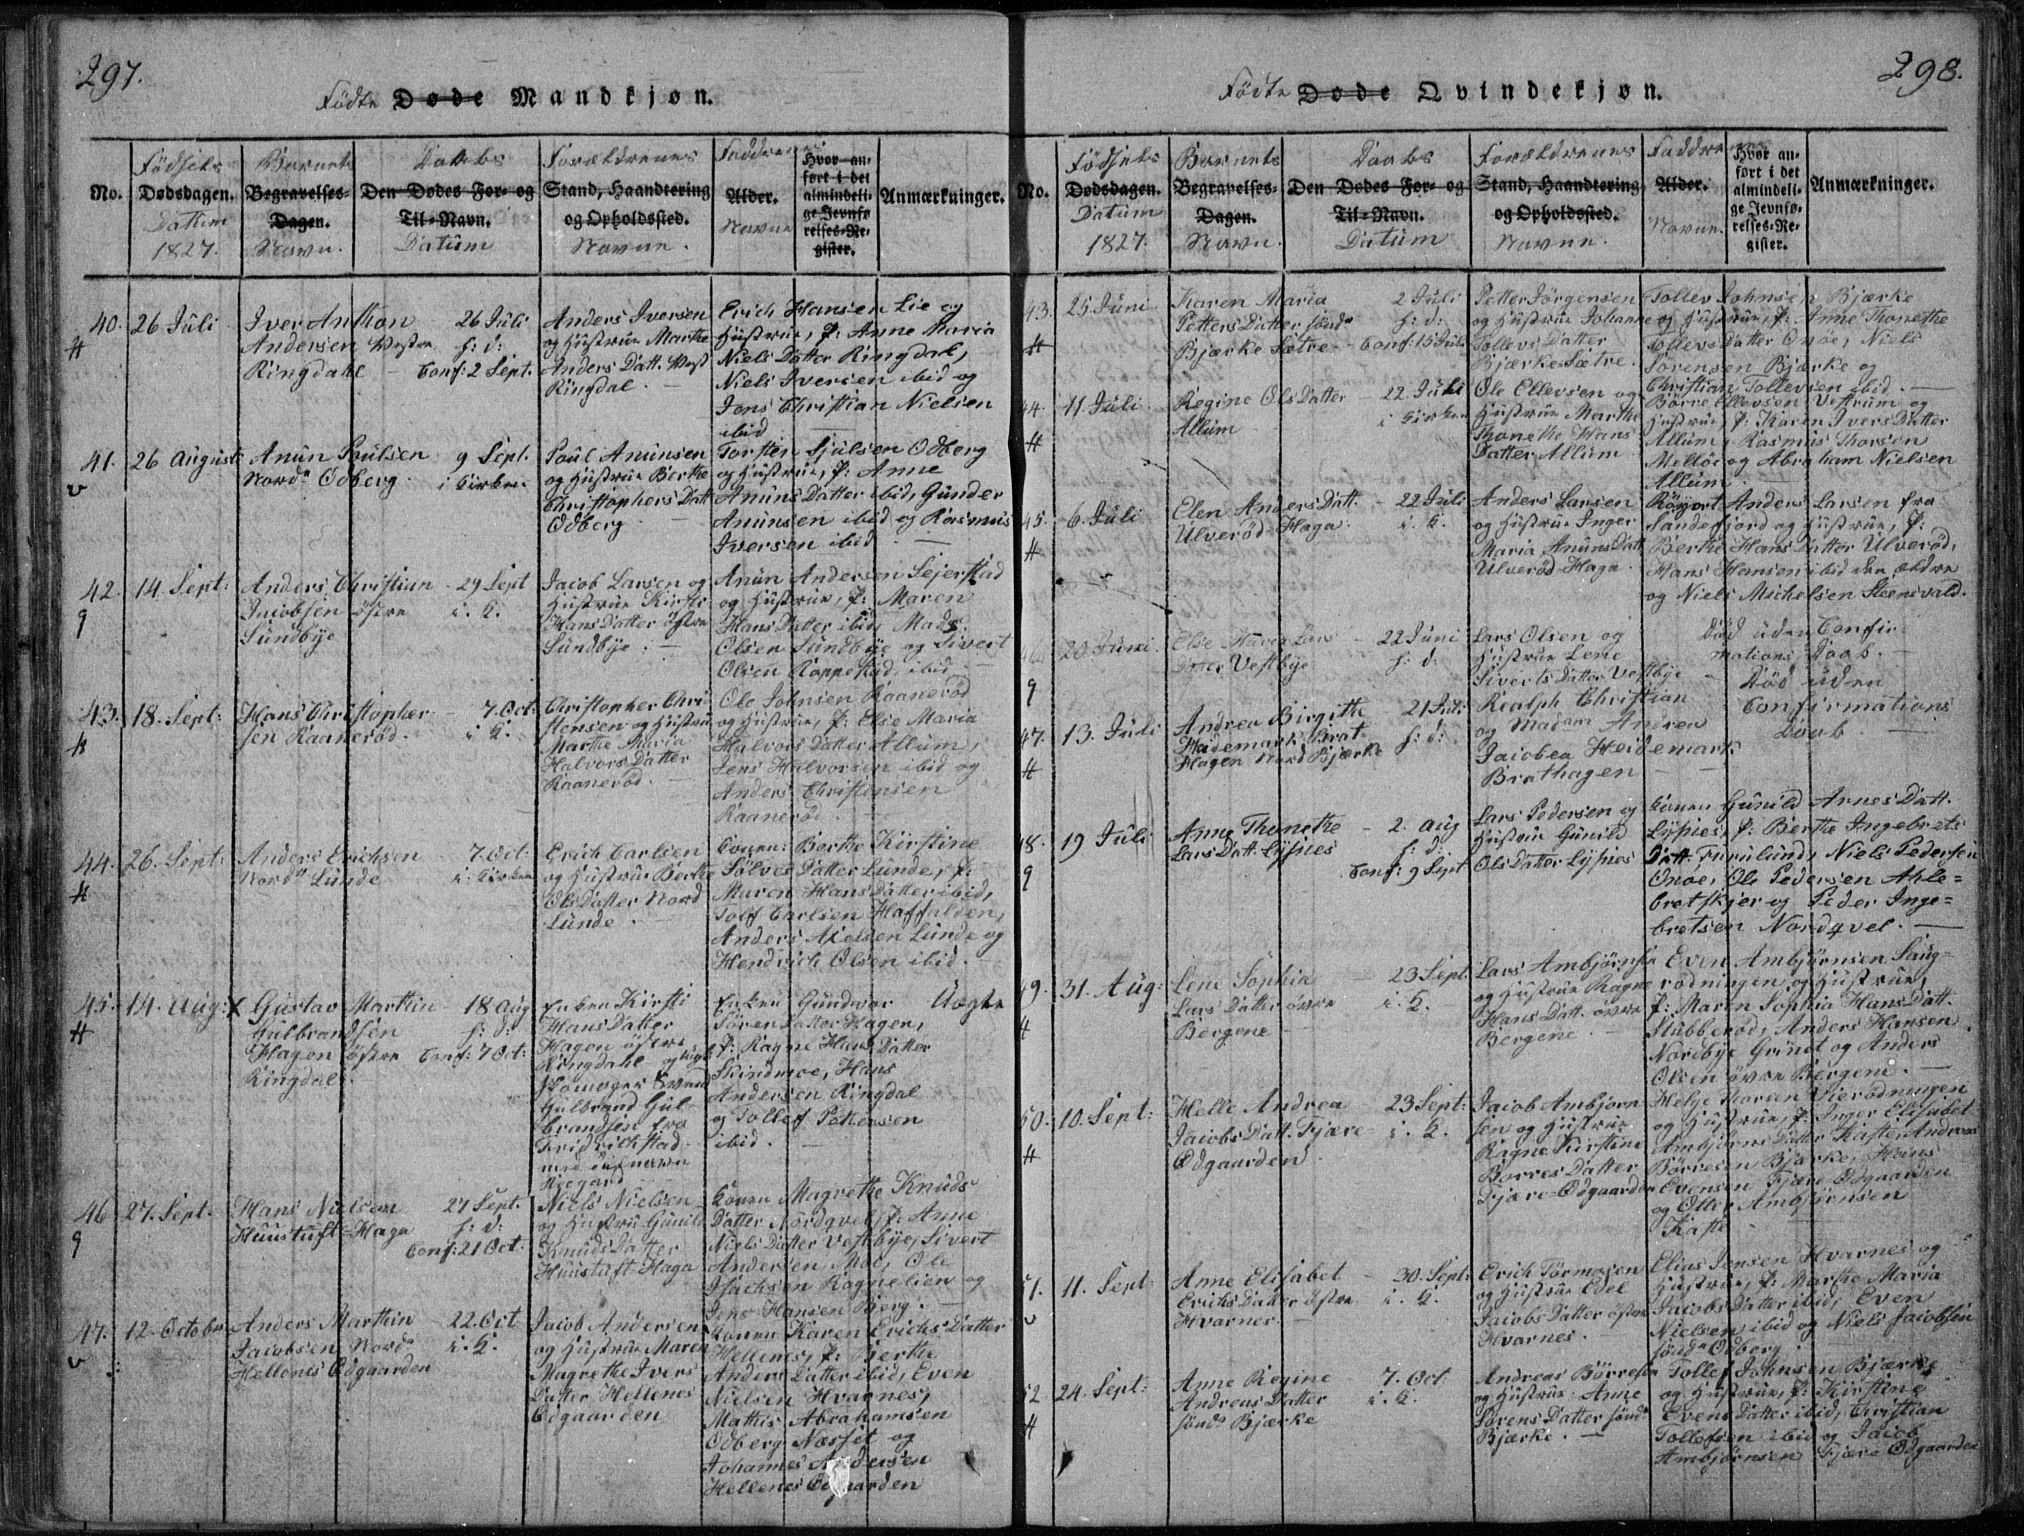 297.
Födte Døde Mandkjøn.
No.
Fødsels
Dødsdagen.
Datum
1827.
Barnets
Begravelses-
Dagen.
Navn.
Daabs
Den Dødes For- og
Til-Navn.
Datum
Forældrenes
Stand, Haandtering
og Opholdssted.
Navne.
Faddrenes
Alder.
Navne
Hvor an-
ført i det
almindeli-
ge Jevnfø-
relses-Re-
gister.
Anmærkninger.
40.
26 Juli
Iver Anthon
Andersen Vestre
Ringdahl
26 Juli
h: d:
Conf: 2 Sept.
Anders Iversen
og Hustrue Marthe
Anders Datt. Vest
Ringdal.
Erich Hansen Lie og
Hustrue, P: Anne Maria
Niels Datter Ringdal,
Niels Iversen ibid og
Jens Christian Nielsen
ibid
41.
26 August
Anun Poulsen
Nord Odberg.
9 Sept.
i Kirken
Poul Anunsen
og Hustrue Berthe
Christophers Datt
Odberg
Torsten Sjulsen Odberg
og Hustrue, P: Anne
Anuns Datter ibid, Gunder
Anunsen ibid og Rasmus
Iversen ibid
42.
14. Sept:
Anders Christian
Jacobsen östre
Sundbye
29 Sept
i. K.
Jacob Larsen og
Hustrue Kirsti
Hans Datter östre
Sundbye.
Anun Andersen Sejerstad
og Hustrue, P: Maren
Hans Datter ibid, Mads
Olsen Sundbye og Sivert
Olsen Rappestad ibid
43.
18. Sept:
Hans Christopher-
sen Raanerød
7. Oct:
i. K.
Christopher Chri-
stensen og Hustrue
Marthe Maria
Halvors Datter
Raanerød.
Ole Johnsen Raanerød
og Hustrue, P: Else Maria
Halvors Datter Allum,
Jens Halvorsen ibid og
Anders Christensen
Raanerød.
44.
26. Sept:
Anders Erichsen
Nord Lunde
7. Oct:
i. Kirken
Erich Carlsen
og Hustrue Berthe
Ols Datter Nord
Lunde.
Konen: Berthe Kirstine
Sølves Datter Lunde, P:
Maren Hans Datter ibid,
Tolf Carlsen Haffalden,
Anders Axelsen Lunde og
Hendrich Olsen ibid.
45.
14. Aug:
Gustav Marthin
Gulbrandsen
Hagen östre
Ringdal.
18 Aug
h: d:
Conf: 7 Oct:
Enken Kirsti
Hans Datter
Hagen östre
Ringdahl og
Gulbrand Gul-
brandsen fra
Fridrichstad
med
Enken Gundvor
Søren Datter Hagen,
P: Ragne Hans Datter
Skindmoe, Hans
Andersen Ringdal
og Tollef Pettersen
ibid.
Uægte
46
27. Sept.
Hans Nielsen
Huustuft-Haga
27 Sept.
h: d:
Conf: 21 Oct.
Niels Nielsen
og Hustrue Gunild
Knuds Datter
Huustuft-Haga
Konen Magrethe Knuds
Datter Nordqvel, P: Anne
Niels Datter Vestbye, Sivert
Andersen Moe, Ole
Isachsen Ragnelien og
Jens Hansen Berg.
47.
12. October
Anders Marthin
Jacobsen Nord
Hellenes Ödgaarden
22. Oct
i. K.
Jacob Andersen
og Hustrue Maren
Magrethe Ivers
Datter Hellenes
Ödgaarden
Konen Karen Erichs Datter
Hellenes, P: Berthe
Anders Datter ibid, Even
Nielsen Hvarnes,
Mathis Abrahamsen
Odberg Næsset og
Johannes Andersen
Hellenes Ödgaarden
298.
Födte Døde Qvindekjøn.
No.
Fødsels
Dødsdagen.
Datum
1827.
Barnets
Begravelses-
Dagen.
Navn.
Daabs
Den Dødes For- og
Til-Navn.
Datum
Forældrenes
Stand, Haandtering
og Opholdssted.
Navne.
Faddrenes
Alder.
Navne.
Hvor an-
ført i det
almindeli-
ge Jevnfø-
relses-Re-
gister.
Anmærkninger.
43.
25 Juni
Karen Maria
Petters Datter sönd
Bjærke Sætre
2 Juli
h: d:
Conf: 15 Juli
Petter Jörgensen
og Hustrue Johanne
Tollevs Datter
Bjærke Sætre.
Tollev Johnsen Bjærke
og Hustrue, P: Anne Thonethe
Tollevs Datter Onöe, Niels
Sörensen Bjærke og
Christian Tollevsen ibid.
44.
11. Juli
Regine Ols Datter
Allum
22 Juli
i Kirken
Ole Ellevsen og
Hustrue Marthe
Thonethe Hans
Datter Allum
Börre Ellevsen Vestrum og
Hustrue, P: Karen Ivers Datter
Allum, Rasmus Thorsen
Melløe og Abraham Nielsen
Allum.
45.
6. Juli
Elen Anders Datt.
Ulveröd-Haga
22 Juli
i. K.
Anders Larsen
og Hustrue Inger
Maria Anuns Datt
Ulveröd-Haga.
Röyert Anders Larsen fra
Sandefjord og Hustrue, P:
Berthe Hans Datter Ulveröd,
Hans Hansen ibid den ældre
og Niels Michelsen Steensvald.
46.
20. Juni
Else Maria Lars
Datter Vestbye
22 Juni
h: d:
Lars Olsen og
Hustrue Lene
Siverts Datter Vestbye
Död uden Confir-
mations Daab.
47.
13. Juli
Andrea Birgithe
Hademark Brat-
Hagen Nord Bjærke
21 Juli
h: d:
Realph Christian
og Madam Andrea
Jacobea Heidemark
Brathagen
Död uden
Confirmations
Daab
48.
19 Juli
Anne Thonethe
Lars Datt. Lysnes
2. Aug
h: d:
Conf: 9 Sept
Lars Pedersen og
Hustrue Gunild
Ols Datter Lysnes
Konen Gunild Arnes Datt.
Lysnes, P: Berthe Ingebrets
Datt. Furulund, Niels Pedersen
Onöe, Ole Pedersen Ahle-
bretskjer og Peder Inge-
bretsen Nordqvel.
49.
31. Aug:
Lene Sophia
Lars Datter övre
Bergene
23 Sept.
i. K.
Lars Ambjörnsen
og Hustrue Ragne
Hans Datt. övre
Bergene
Even Ambjörnsen Saug-
rödningen og Hustrue,
P: Maren Sophia Hans Datt.
Stubberöd, Anders Hansen
Nordbye Grünet og Anders
Olsen övre Bergene.
50.
10. Sept:
Helle Andrea
Jacobs Datt. Fjære-
Ödgaarden
23 Sept:
i. K.
Jacob Ambjörn-
sen og Hustrue
Ragne Kirstine
Börres Datter
Fjære-Ödgaarden
Helje Larsen Lierödningen
og Hustrue, P: Inger Elisabet
Ambjörns Datter Kaste, Andreas
Börresen Bjærke, Hans
Evensen Fjære Ödgaarden
og Otter Ambjörnsen
Kaste
51.
11. Sept:
Anne Elisabet
Erichs Datter östre
Hvarnes
30. Sept:
i. K.
Erich Tormosen
og Hustrue Edel
Jacobs Datter östre
Hvarnes.
Elias Jensen Hvarnes og
Hustrue, P: Marthe Maria
Jacobs Datter ibid, Even
Nielsen ibid og Niels Jacobsen
sönd Odberg
52.
24. Sept:
Anne Regine
Andreas Datter
sönd Bjærke
7. Oct
i. K.
Andreas Börresen
og Hustrue Anne
Sörens Datter sönd
Bjærke.
Tollef Johnsen Bjærke
og Hustrue, P: Kirstine
Evens Datter ibid, Christian
Tollefsen ibid og Jacob
Ambjörnsen Fjære Ödgaarden